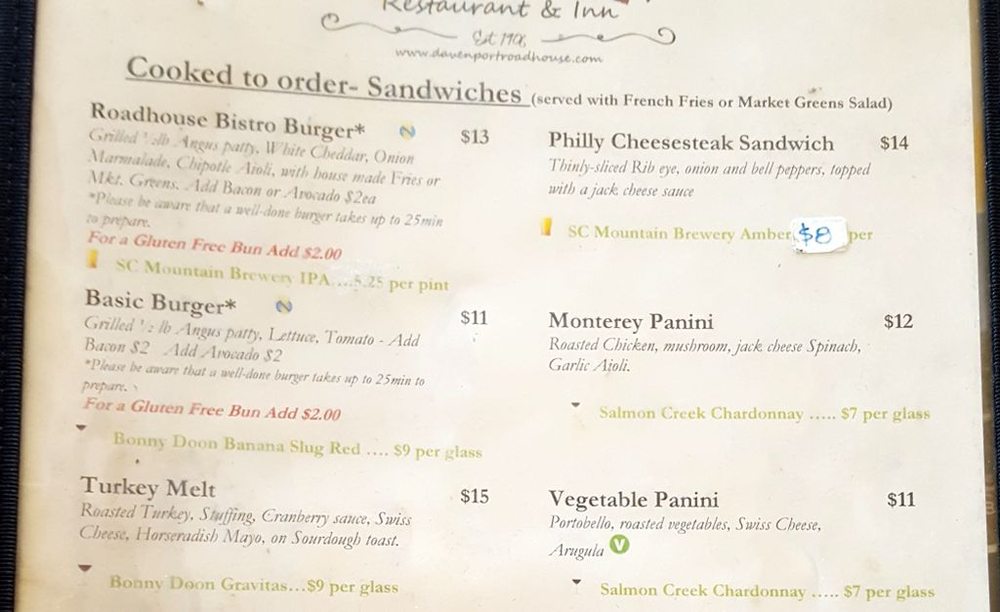 Restaurant & Inn
Est 1906
www.davenportroadhouse.com
Cooked to order- Sandwiches (served with French Fries or Market Greens Salad)
Roadhouse Bistro Burger* $13
Grilled ½lb Angus patty, White Cheddar, Onion
Marmalade, Chipotle Aioli, with house made Fries or
Mkt. Greens. Add Bacon or Avocado $2ea
*Please be aware that a well-done burger takes up to 25min
to prepare.
For a Gluten Free Bun Add $2.00
SC Mountain Brewery IPA....5.25 per pint
Basic Burger* $11
Grilled ½ lb Angus patty, Lettuce, Tomato - Add
Bacon $2 Add Avocado $2
*Please be aware that a well-done burger takes up to 25min to
prepare.
For a Gluten Free Bun Add $2.00
Bonny Doon Banana Slug Red .... $9 per glass
Turkey Melt $15
Roasted Turkey, Stuffing, Cranberry sauce, Swiss
Cheese, Horseradish Mayo, on Sourdough toast.
Bonny Doon Gravitas...$9 per glass
Philly Cheesesteak Sandwich $14
Thinly-sliced Rib eye, onion and bell peppers, topped
with a jack cheese sauce
SC Mountain Brewery Amber $8 per
Monterey Panini $12
Roasted Chicken, mushroom, jack cheese Spinach,
Garlic Aioli.
Salmon Creek Chardonnay ..... $7 per glass
Vegetable Panini $11
Portobello, roasted vegetables, Swiss Cheese,
Arugula V
Salmon Creek Chardonnay ..... $7 per glass